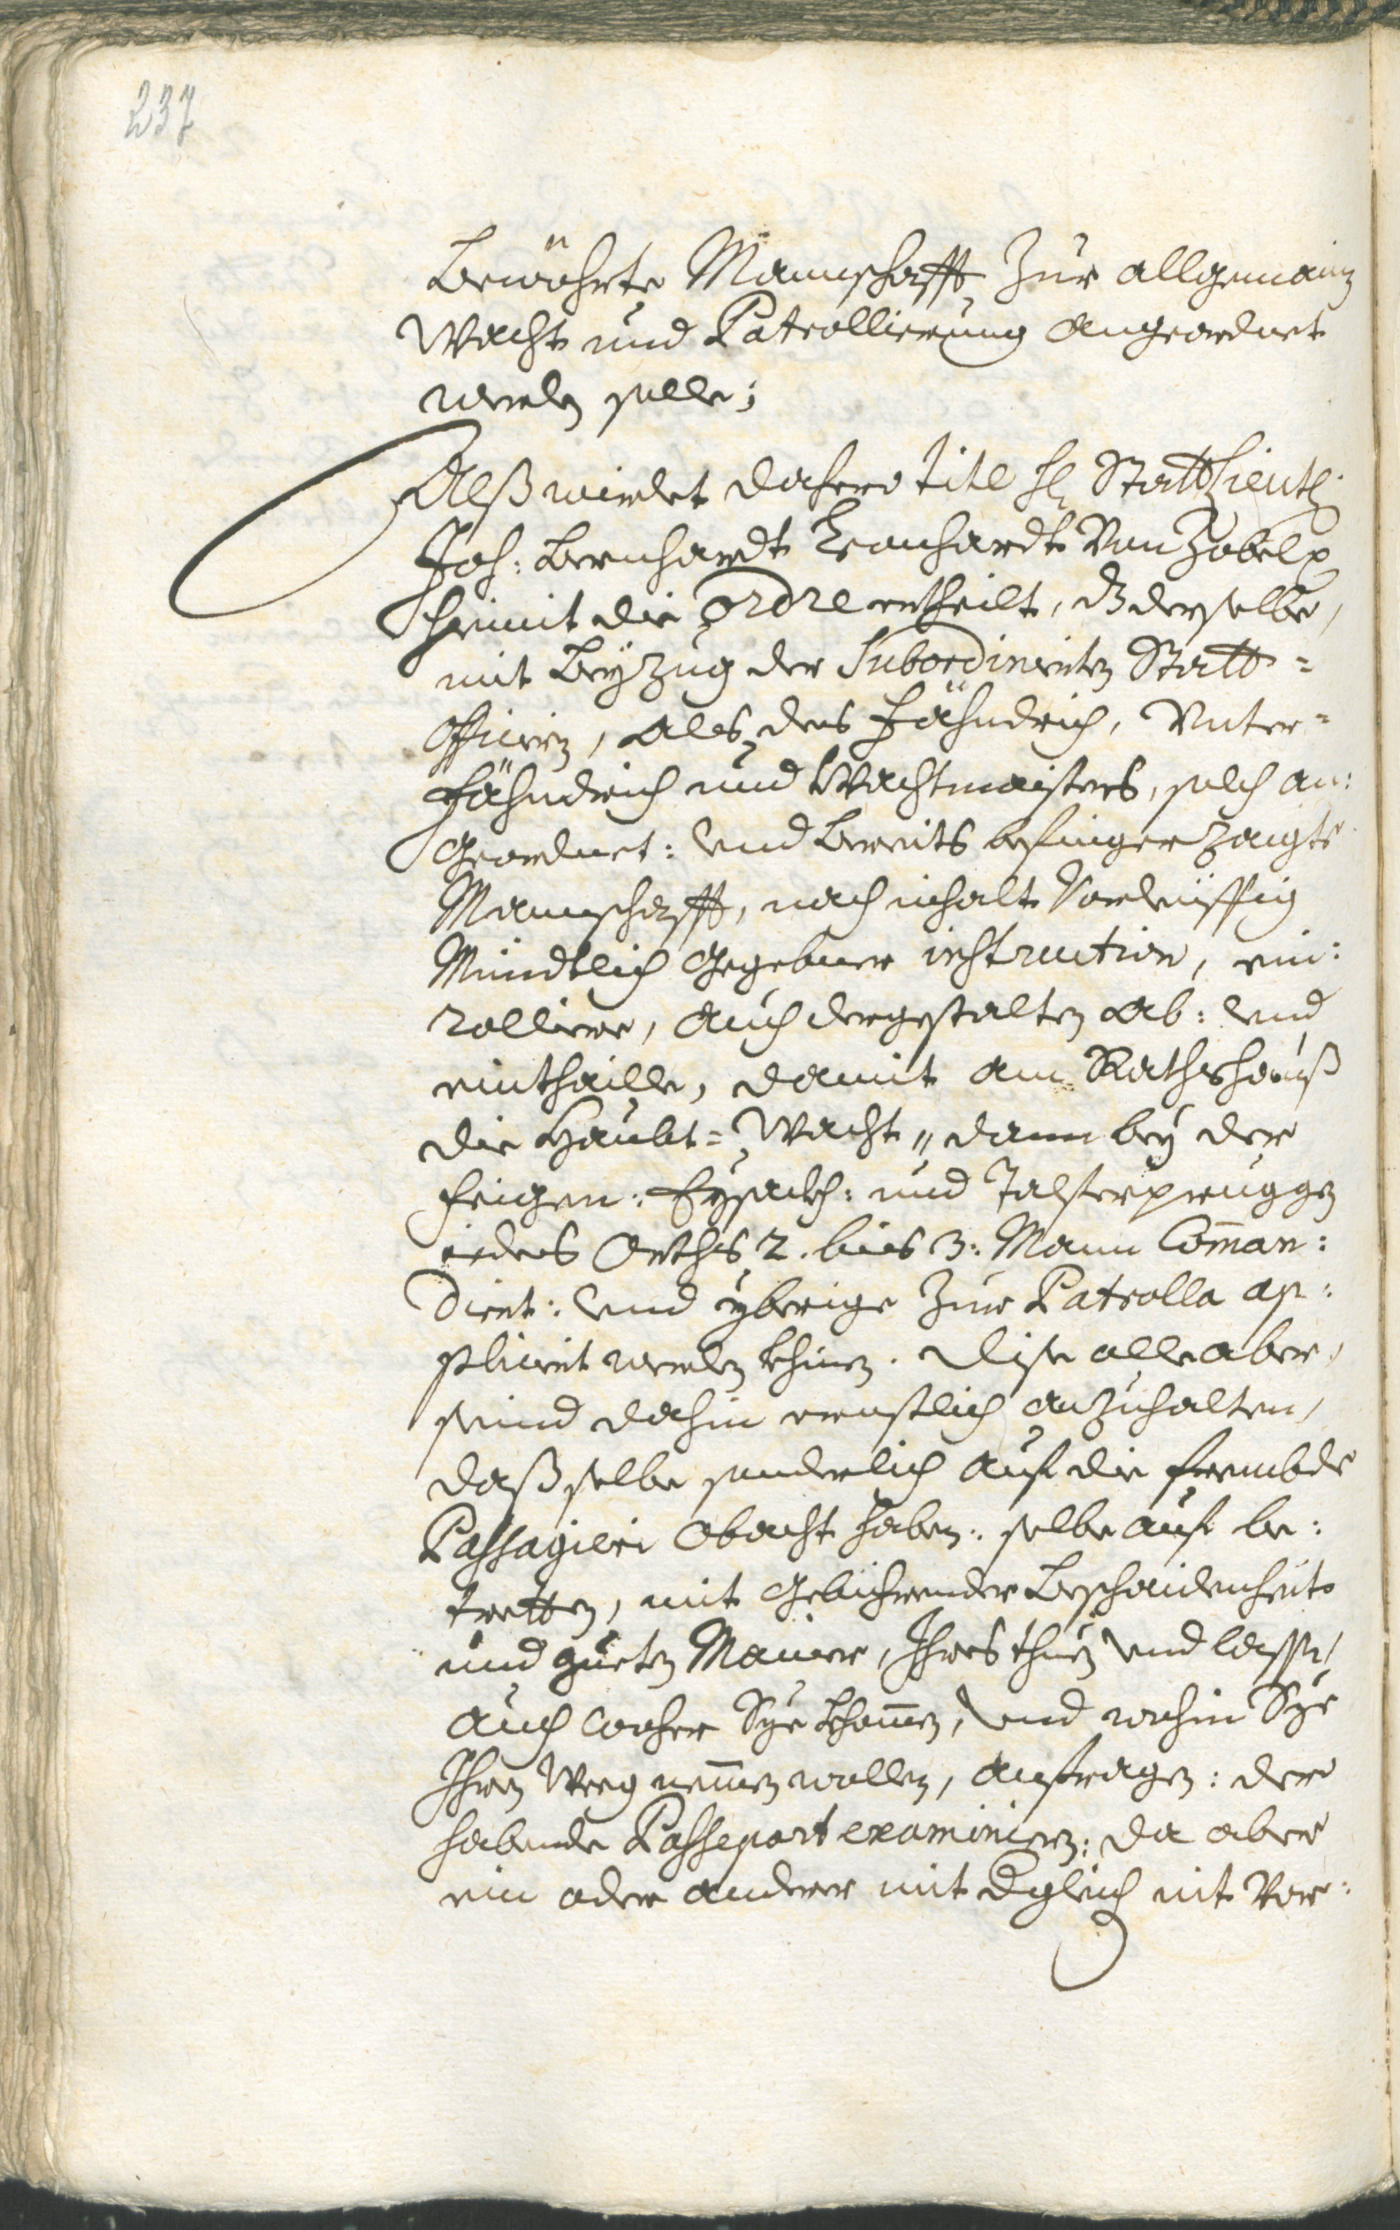 237
Bewöhrte Mannschafft, zur allgemainen
Wacht und Patrollierung angeordnet
werden solle;
Alß wirdet dahero titl H: StattLieutt:
Joh: Bernhardt Leonhardt von Zobel
hiemit die ordre ertheilt, dz derselbe,
mit Beyzug der Subordinierten Statt=
Officiern, als des Fähndrich, Unter=
Fähndrich und Wachtmaisters, solch an:
Geordnet: und bereits
Mannschafft, nach inhalt vorleiffig
Mündtlich gegebner instruction, ein:
rolliere, auch dergestalten ab: und
einthaille, damit am Rathshauß
die Haubt=Wacht, dann bey der
Eysackh: und Talferpruggen
iedes Orths 2. bis 3: Mann Comman:
diert: und yberige zur Patrolla ap:
plicirt werden khinen. dise alle aber,
seind dahin ernstlich anzuhalten,
daß selbe sonderlich auf die frembde
Passagieri obacht haben: selbe auf be:
tretten, mit gebührender Beschaidenheit
und gueten Manier, Ihres thuen und lassen,
auch woher Sye khommen, und wohin Sye
Ihren Weeg nemmen wollen, anfragen: der
habende Passeport examiniern: da aber
ein oder anderer mit dgleich nit vor: